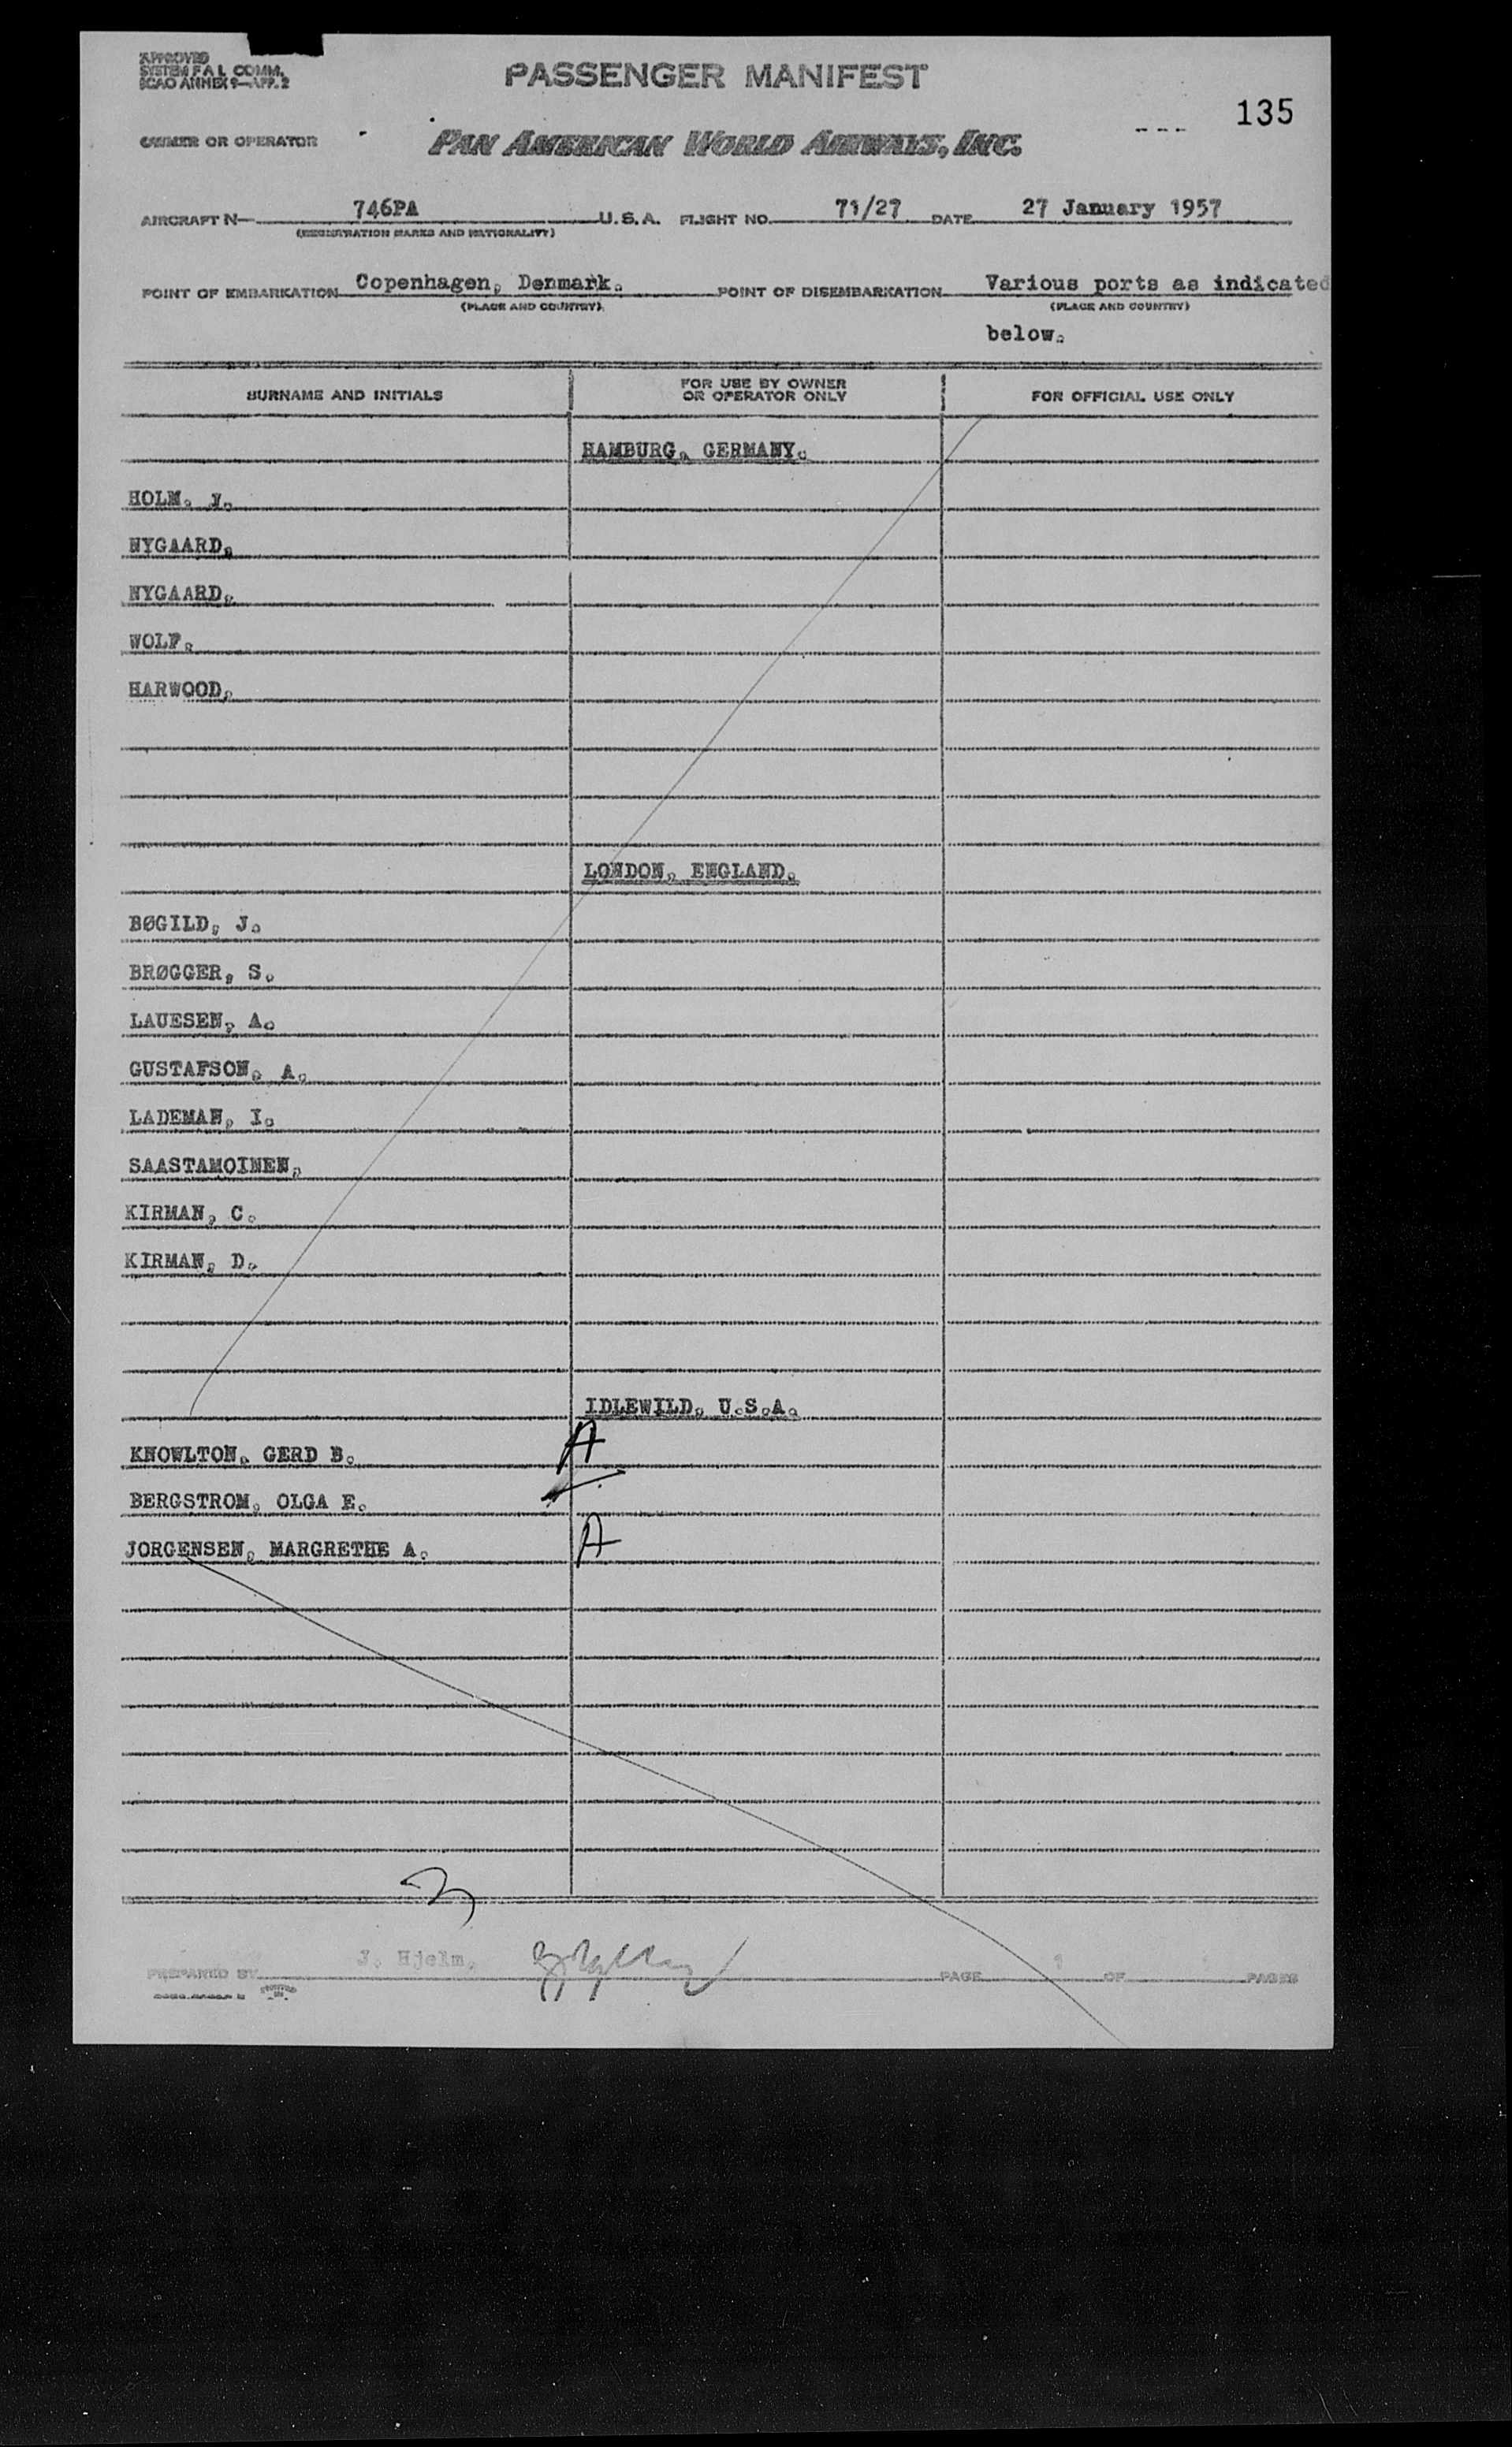 APPROVED
SYSTEM F A L COMM.
ICAO ANNEX 9—APP. 2
PASSENGER MANIFEST
135
OWNER OR OPERATOR
PAN AMERICAN WORLD AIRWAYS, INC.
AIRCRAFT N— 746PA U.S.A. FLIGHT NO. 71/27 DATE 27 January 1957
(REGISTRATION MARKS AND NATIONALITY)
POINT OF EMBARKATION Copenhagen, Denmark. POINT OF DISEMBARKATION Various ports as indicated
(PLACE AND COUNTRY) (PLACE AND COUNTRY)
below.
SURNAME AND INITIALS FOR USE BY OWNER OR OPERATOR ONLY FOR OFFICIAL USE ONLY
HAMBURG, GERMANY.
HOLM.
NYGAARD,
NYGAARD,
WOLF,
HARWOOD,
LONDON, ENGLAND.
BØGILD, J.
BRØGGER, S.
LAUESEN, A.
GUSTAFSON, A.
LADEMAN, I.
SAASTAMOINEN,
KIRMAN, C.
KIRMAN, D.
IDLEWILD, U.S.A.
KNOWLTON, GERD B. A
BERGSTROM, OLGA E.
JORGENSEN, MARGRETHE A. A
3
PREPARED BY J. Hjelm, PAGE 1 OF PAGES